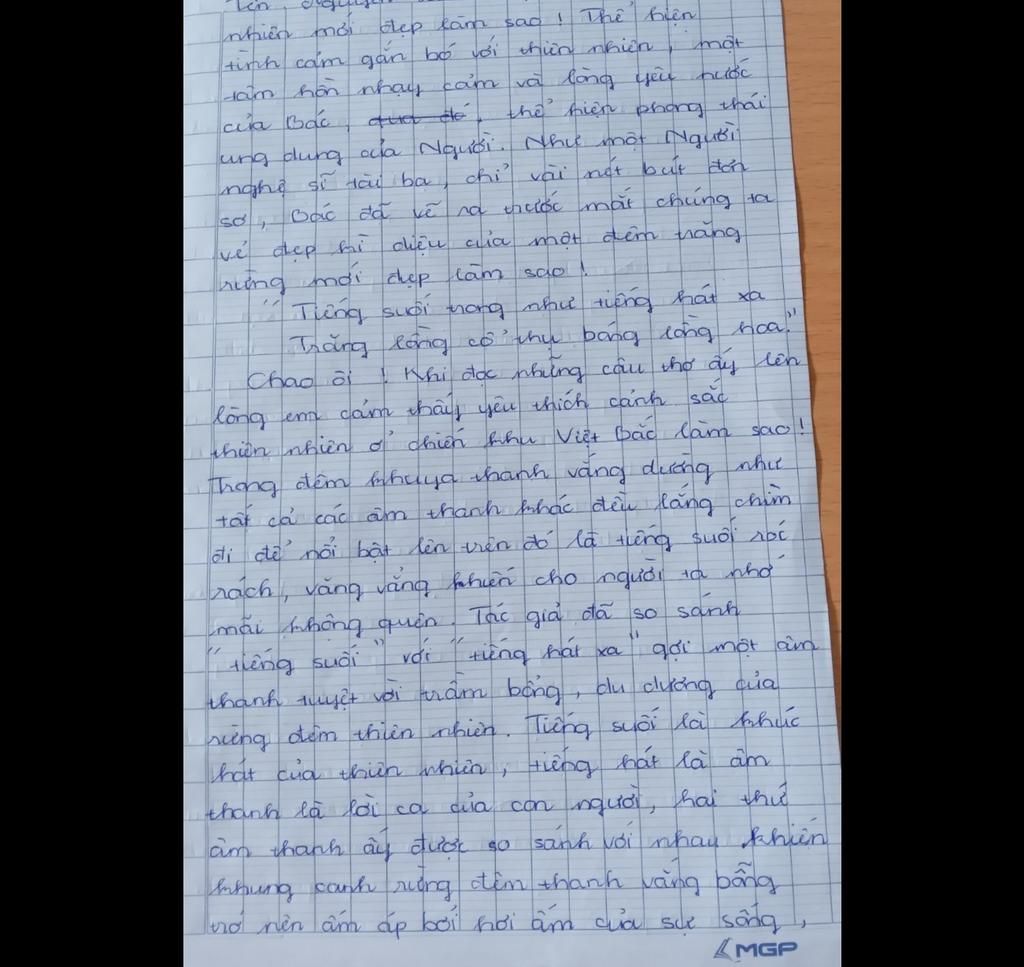 Tên
nhiên mới đẹp làm sao ! Thể hiện
tình cảm gắn bó với thiên nhiên, một
tâm hồn nhạy cảm và lòng yêu nước
của Bác, qua đó, thể hiện phong thái
ung dung của Người. Như một Người
nghệ sĩ tài ba, chỉ vài nét bút đơn
sơ, Bác đã vẽ ra trước mắt chúng ta
vẻ đẹp kì diệu của một đêm trăng
rừng mới đẹp làm sao !
" Tiếng suối trong như tiếng hát xa
Trăng lồng cổ thụ bóng lồng hoa."
Chao ôi ! Khi đọc những câu thơ ấy lên
lòng em cảm thấy yêu thích cảnh sắc
thiên nhiên ở chiến khu Việt Bắc làm sao !
Trong đêm khuya thanh vắng dường như
tất cả các âm thanh khác đều lắng chìm
đi để nổi bật lên trên đó là tiếng suối róc
rách, văng vẳng khiến cho người ta nhớ
mãi không quên. Tác giả đã so sánh
" tiếng suối " với " tiếng hát xa " gợi một âm
thanh tuyệt vời trầm bổng, du dương của
rừng đêm thiên nhiên. Tiếng suối là khúc
hát của thiên nhiên, tiếng hát là âm
thanh là lời ca của con người, hai thứ
âm thanh ấy được so sánh với nhau khiến
khung cảnh rừng đêm thanh vắng bỗng
trở nên ấm áp bởi hơi ấm của sự sống,
MGP